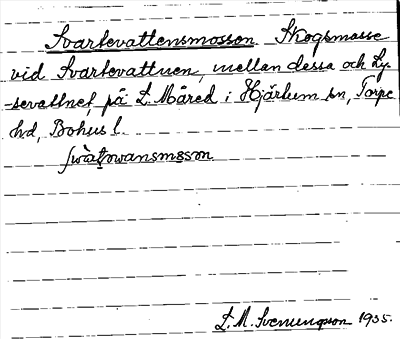 Svartevattensmossen Skogsmosse
vid Svartevattnen, mellan dessa och Ly-
-sevattnet, på L. Måred i Hjärtum sn, Torpe
hd, Bohus l.
swàṭowansmosson
L. M. Svenungsson 1935.